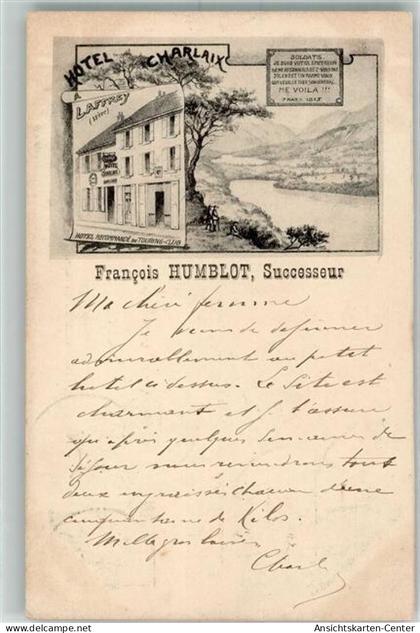 HOTEL CHARLAIX
A LAFFREY
(Isère)
HOTEL RECOMMANDÉ DU TOURING-CLUB
SOLDATS
JE SUIS VOTRE EMPEREUR
ME VOILA !!!
7 MARS 1815
François HUMBLOT, Successeur
Ma chère femme
Je viens de déjeuner
admirablement au petit
hotel ci dessus. Le Site est
charmant et je t'assure
qu'après quelques semaines de
séjour nous reviendrons tout
deux engraissés chacun d'une
cinquantaine de Kilos.
Mille gros baisers
Charl
© Ansichtskarten-Center
Ansichtskarten-Center